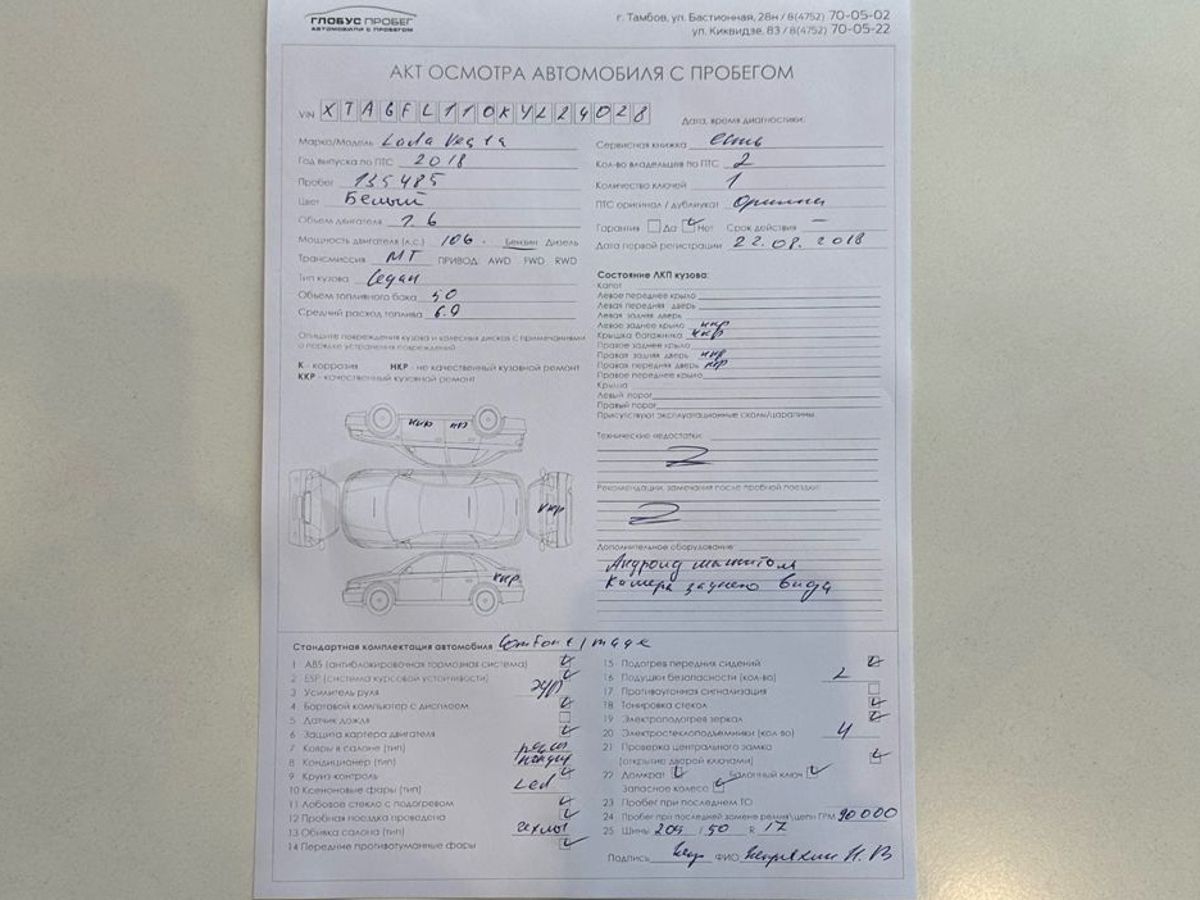 ГЛОБУС ПРОБЕГ
АВТОМОБИЛИ С ПРОБЕГОМ
г. Тамбов, ул. Бастионная, 28н / 8(4752) 70-05-02
ул. Киквидзе, 83 / 8(4752) 70-05-22
АКТ ОСМОТРА АВТОМОБИЛЯ С ПРОБЕГОМ
VIN XTAGFL110KYL24028
Дата, время диагностики:
Марка/Модель Lada Vesta
Год выпуска по ПТС 2018
Пробег 135485
Цвет Белый
Объем двигателя 1.6
Мощность двигателя (л.с.) 106. Бензин Дизель
Трансмиссия МТ ПРИВОД: AWD FWD RWD
Тип кузова Седан
Объем топливного бака 50
Средний расход топлива 6.9
Опишите повреждения кузова и колесных дисков с примечаниями
о порядке устранения повреждений
К - коррозия НКР - не качественный кузовной ремонт
ККР - качественный кузовной ремонт
Сервисная книжка есть
Кол-во владельцев по ПТС 2
Количество ключей 1
ПТС оригинал / дубликат
Гарантия Да Нет Срок действия —
Дата первой регистрации 22.08.2018
Состояние ЛКП кузова:
Капот
Левое переднее крыло
Левая передняя дверь
Левая задняя дверь
Левое заднее крыло ккр
Крышка багажника ккр
Правое заднее крыло
Правая задняя дверь
Правая передняя дверь
Правое переднее крыло
Крыша
Левый порог
Правый порог
Присутствуют эксплуатационные сколы/царапины
Технические недостатки:
Рекомендации, замечания после пробной поездки:
Дополнительное оборудование:
Андроид магнитола
Камера заднего вида
ккр
ккр
Стандартная комплектация автомобиля Comfort / Image
1 ABS (антиблокировочная тормозная система)
2 ESP (система курсовой устойчивости)
3 Усилитель руля ЭУР
4 Бортовой компьютер с дисплеем
5 Датчик дождя
6 Защита картера двигателя
7 Ковры в салоне (тип)
8 Кондиционер (тип)
9 Круиз-контроль
10 Ксеноновые фары (тип) Led
11 Лобовое стекло с подогревом
12 Пробная поездка проведена
13 Обивка салона (тип) чехлы
14 Передние противотуманные фары
15 Подогрев передних сидений
16 Подушки безопасности (кол-во) 2
17 Противоугонная сигнализация
18 Тонировка стекол
19 Электроподогрев зеркал
20 Электростеклоподъемники (кол-во) 4
21 Проверка центрального замка
(открытие дверей ключами)
22 Домкрат Балонный ключ
Запасное колесо
23 Пробег при последнем ТО
24 Пробег при последней замене ремня\цепи ГРМ 90000
25 Шины 205 / 50 R 17
Подпись ФИО